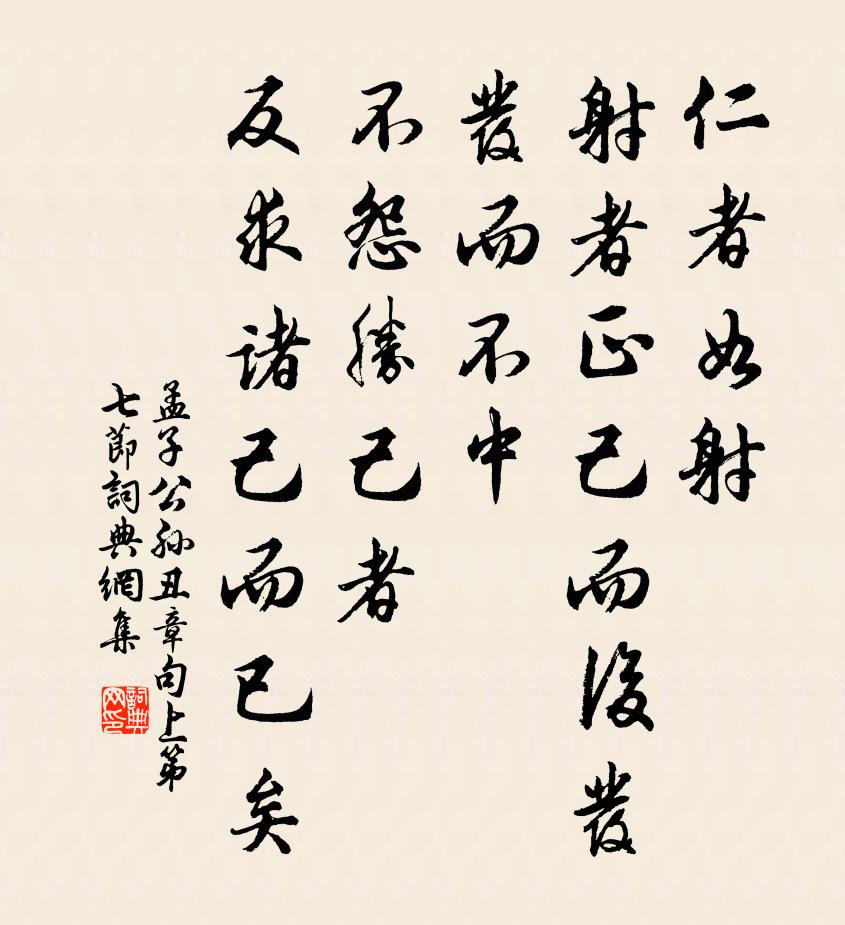 仁者如射
射者正己而後發
發而不中
不怨勝己者
反求諸己而已矣
孟子公孫丑章句上第
七節詞典網集
詞典
网印